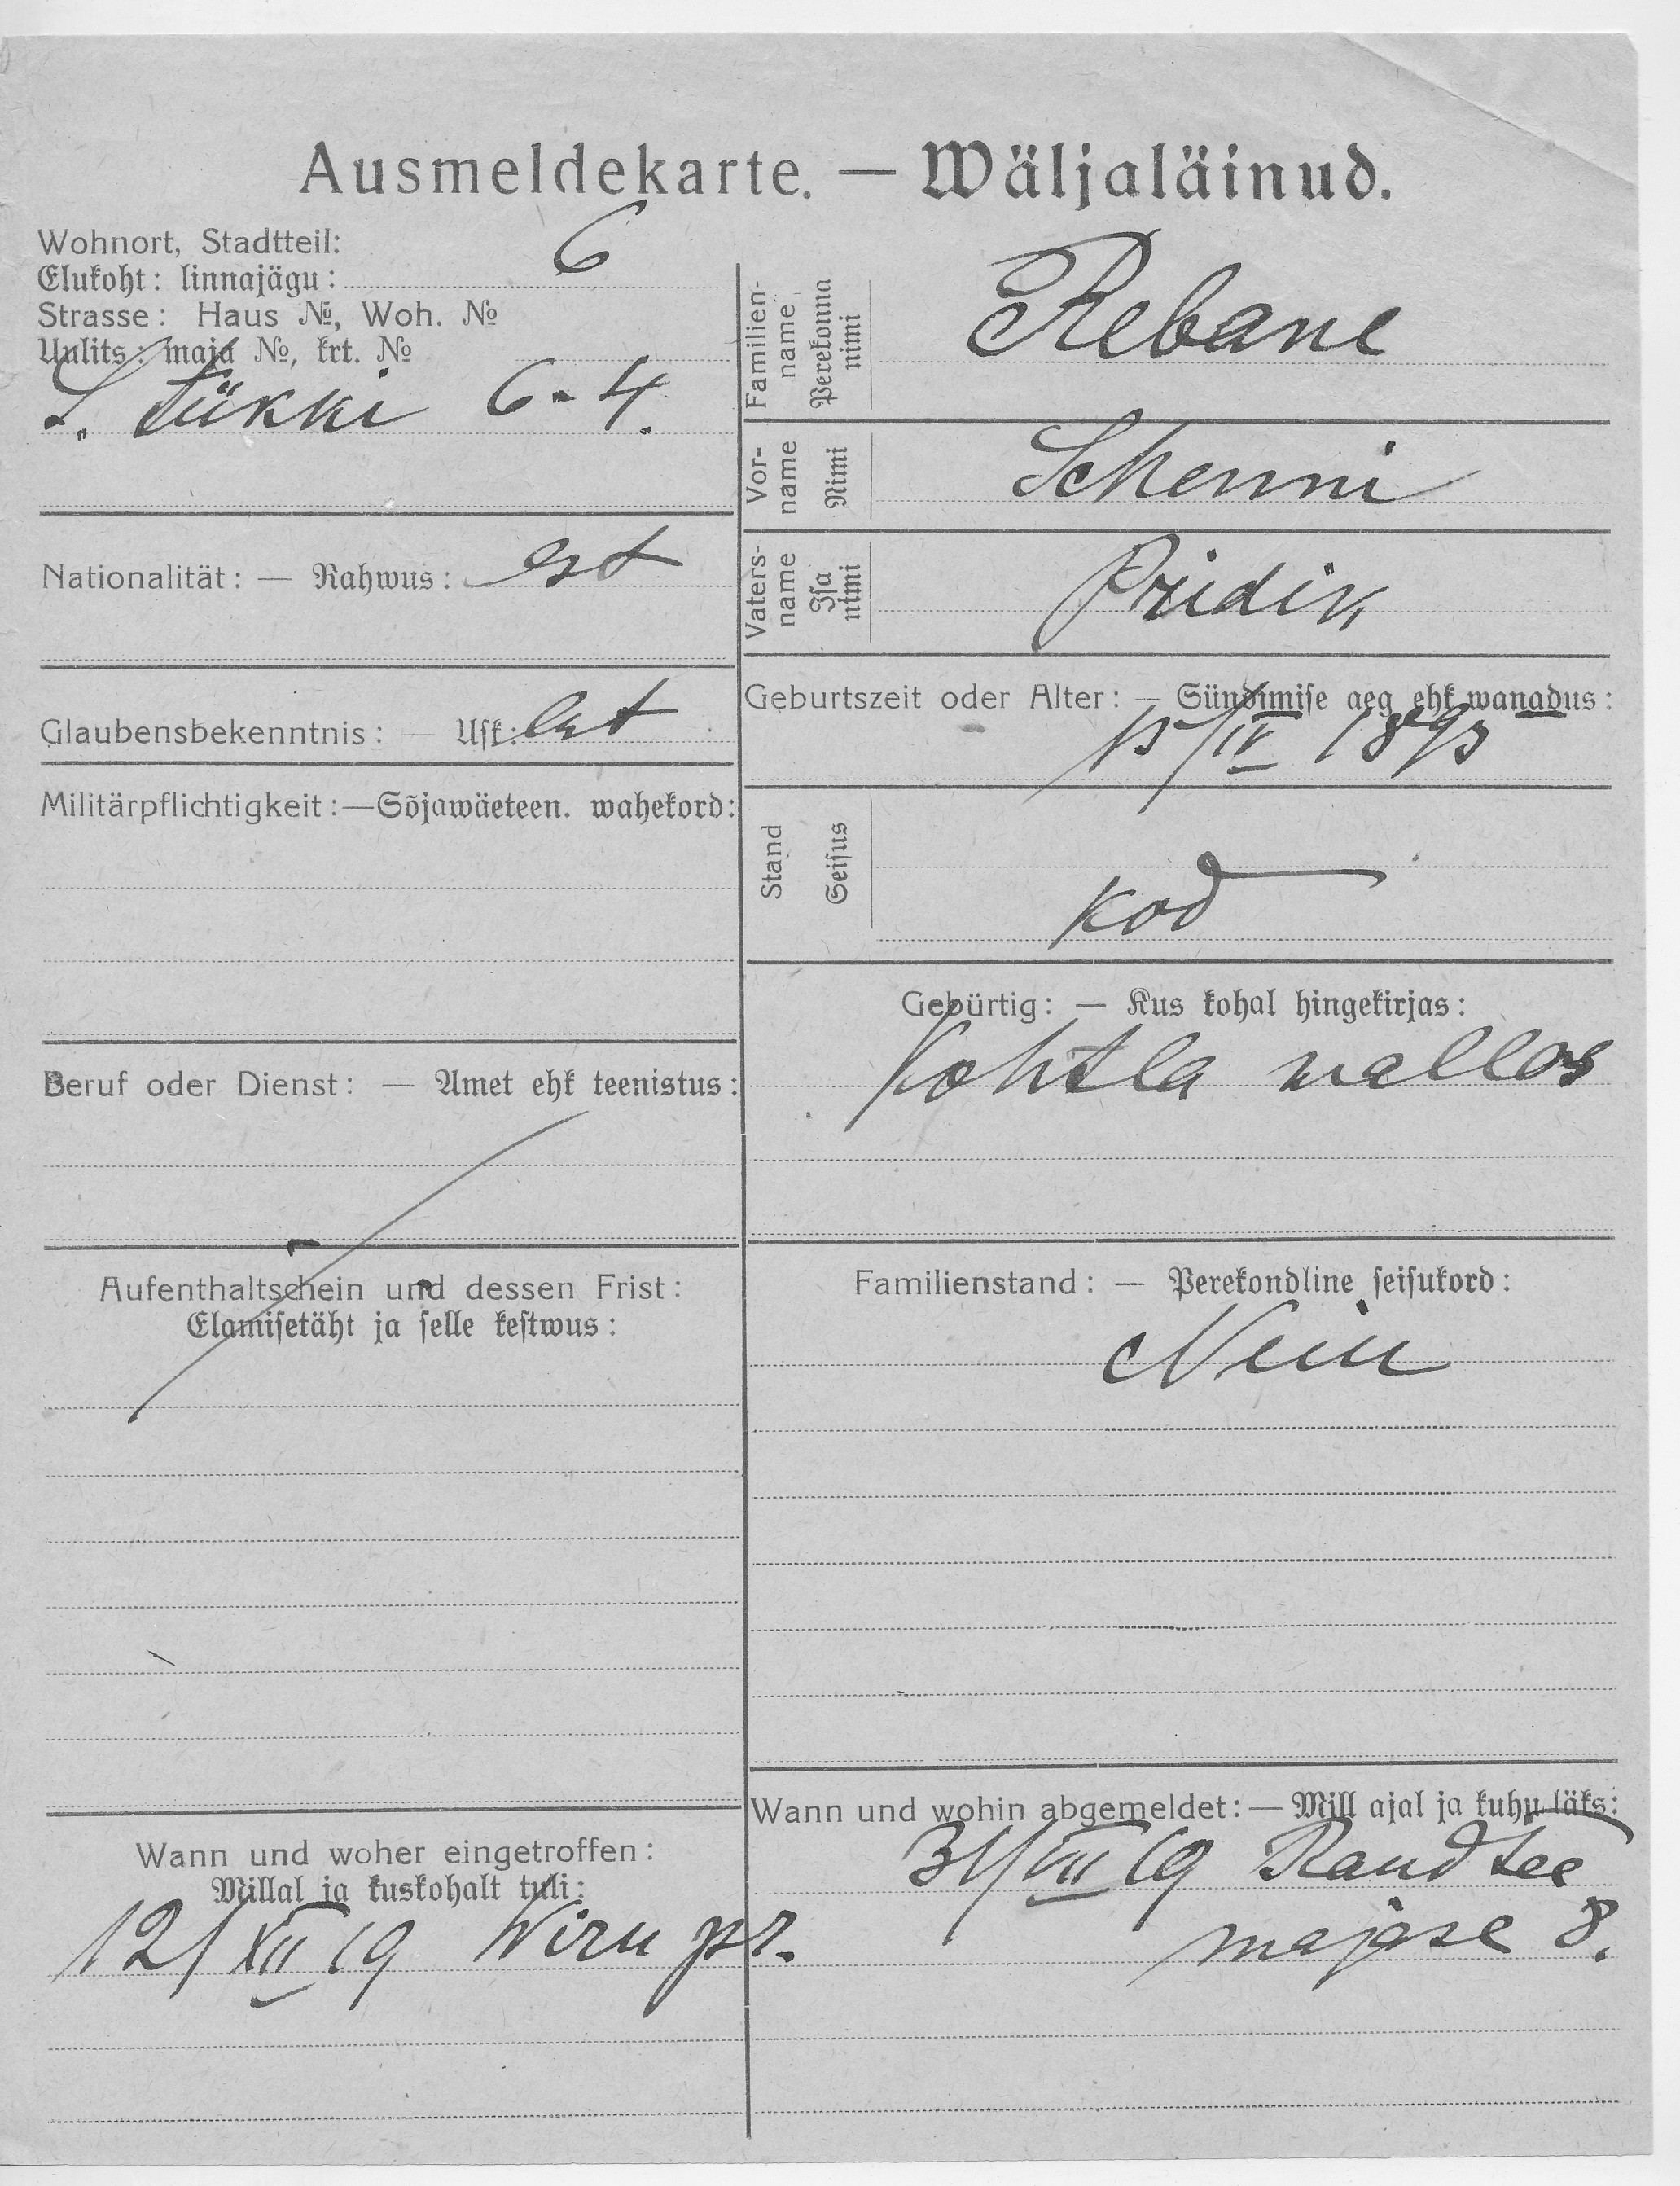 Ausmeldekarte. — Wäljaläinud.
Wohnort, Stadtteil:
Elukoht: linnajägu: 6
Strasse: Haus №, Woh. №
Uulits: maja №, krt. №
S. Tükki 6-4.
Nationalität: — Rahwus: est
Glaubensbekenntnis: — Usk: lut
Militärpflichtigkeit:—Sõjawäeteen. wahekord:
Beruf oder Dienst: — Amet ehk teenistus:
Aufenthaltschein und dessen Frist:
Elamisetäht ja selle kestwus:
Wann und woher eingetroffen:
Millal ja kuskohalt tuli:
12/XII 19 Wiru pr.
Familien-
name
Perekonna
nimi
Rebane
Vor-
name
Nimi
Schenni
Vaters-
name
Isa
nimi
Pridik
Geburtszeit oder Alter: — Sündimise aeg ehk wanadus:
15/IV 1893
Stand
Seisus
kod
Gebürtig: — Kus kohal hingekirjas:
Kohtla wallas
Familienstand: — Perekondline seisukord:
Neiu
Wann und wohin abgemeldet:—Mill ajal ja kuhu läks:
31/VII 19 Rand tee
majase 8.